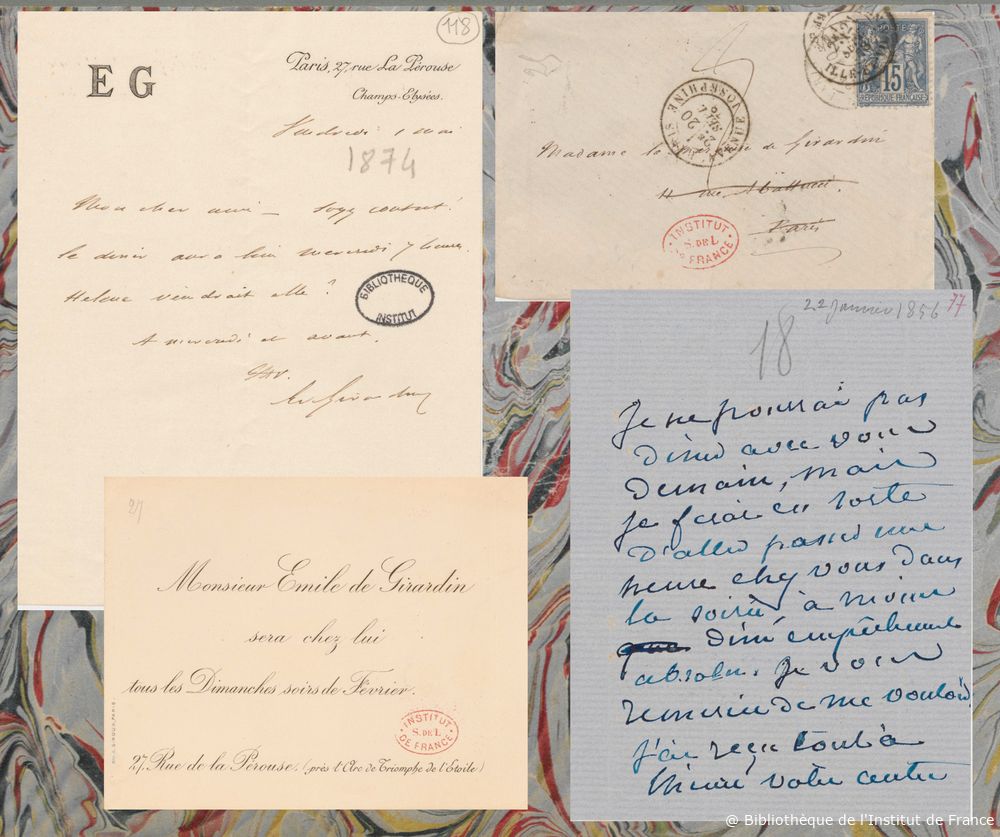 118
E G
Paris, 27, rue La Pérouse
Champs-Elysées.
Vendredi 1 mai
1874
Mon cher ami — soyez content!
le diner aura lieu mercredi 7 heures.
Helene viendrait elle?
A mercredi et avant.
E de Girardin
BIBLIOTHEQUE
INSTITUT
3
PARIS
AVENUE JOSEPHINE
20
ILLE
POSTE
15
REPUBLIQUE FRANÇAISE
Madame la de Girardin
rue
Paris
INSTITUT
S. DE L
DE FRANCE
21
Monsieur Emile de Girardin
sera chez lui
tous les Dimanches soirs de Février.
27, Rue de la Pérouse. (près l'Arc de Triomphe de l'Etoile)
INSTITUT
S. DE L
DE FRANCE
22 Janvier 1856 77
18
Je ne pourrai pas
diner avec vous
Demain, mais
je ferai en sorte
D'aller passer une
heure chez vous dans
la soirée, à moins
empêchement
absolu. Je vous
remercie de me vouloir
j'ai reçu tout à
votre
@ Bibliothèque de l'Institut de France